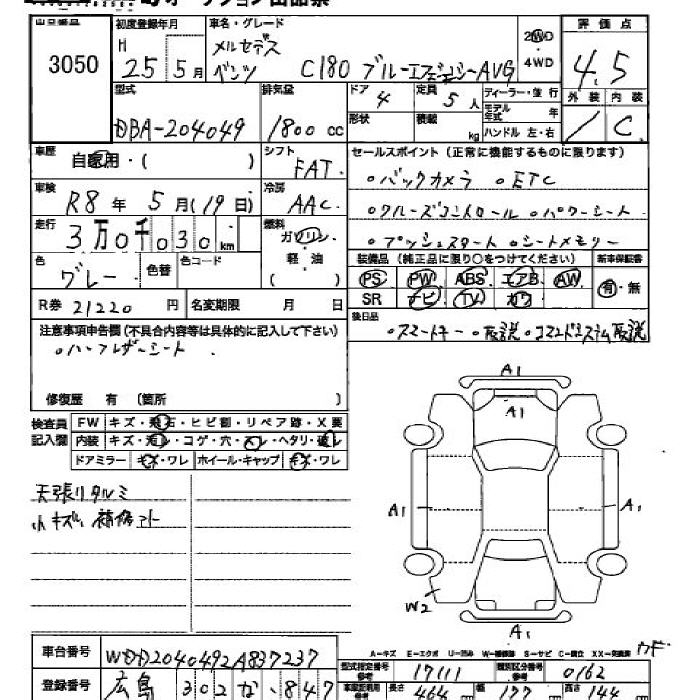 初度登録年月 車名・グレード 評価点
3050 H 25年5月 メルセデス ベンツ C180 ブルーエフィシェンシーAVG 2WD・4WD 4.5
型式 排気量 ドア 4 定員 5人 ディーラー・並行 外装 内装
DBA-204049 1800cc 形状 積載 kg モデル年式 年 ハンドル 左・右 / C
車歴 自家用・( ) シフト FAT セールスポイント(正常に機能するものに限ります)
車検 R8年5月(19日) 冷房 AAC ○バックカメラ ○ETC
走行 3万0千030km 燃料 ガソリン・軽油( ) ○クルーズコントロール ○パワーシート
○プッシュスタート ○シートメモリー
色 グレー 色替 色コード 装備品(純正品に限り○をつけてください) 新車保証書
PS PW ABS エアB AW 有・無
R券 21220円 名変期限 月 日 SR ナビ TV カワ
注意事項申告欄(不具合内容等は具体的に記入して下さい) 後日品
○ハーフレザーシート ○スマートキー ○取説 ○コマンドシステム取説
修復歴 有 (箇所 )
検査員記入欄 FW キズ・飛石・ヒビ割・リペア跡・X要
内装 キズ・汚レ・コゲ・穴・スレ・ヘタリ・破レ
ドアミラー キズ・ワレ ホイール・キャップ キズ・ワレ
天張リタルミ
小キズ、補修アト
A1
A1
A1 A1
W2
A1
A-キズ E-エクボ U-凹み W-補修跡 S-サビ C-腐立 XX-交換済
車台番号 WDD2040492A837237 型式指定番号 参考 17111 類別区分番号 参考 0162
登録番号 広島 302 な 847 長さ 464 cm 幅 177 cm 高さ 144 cm